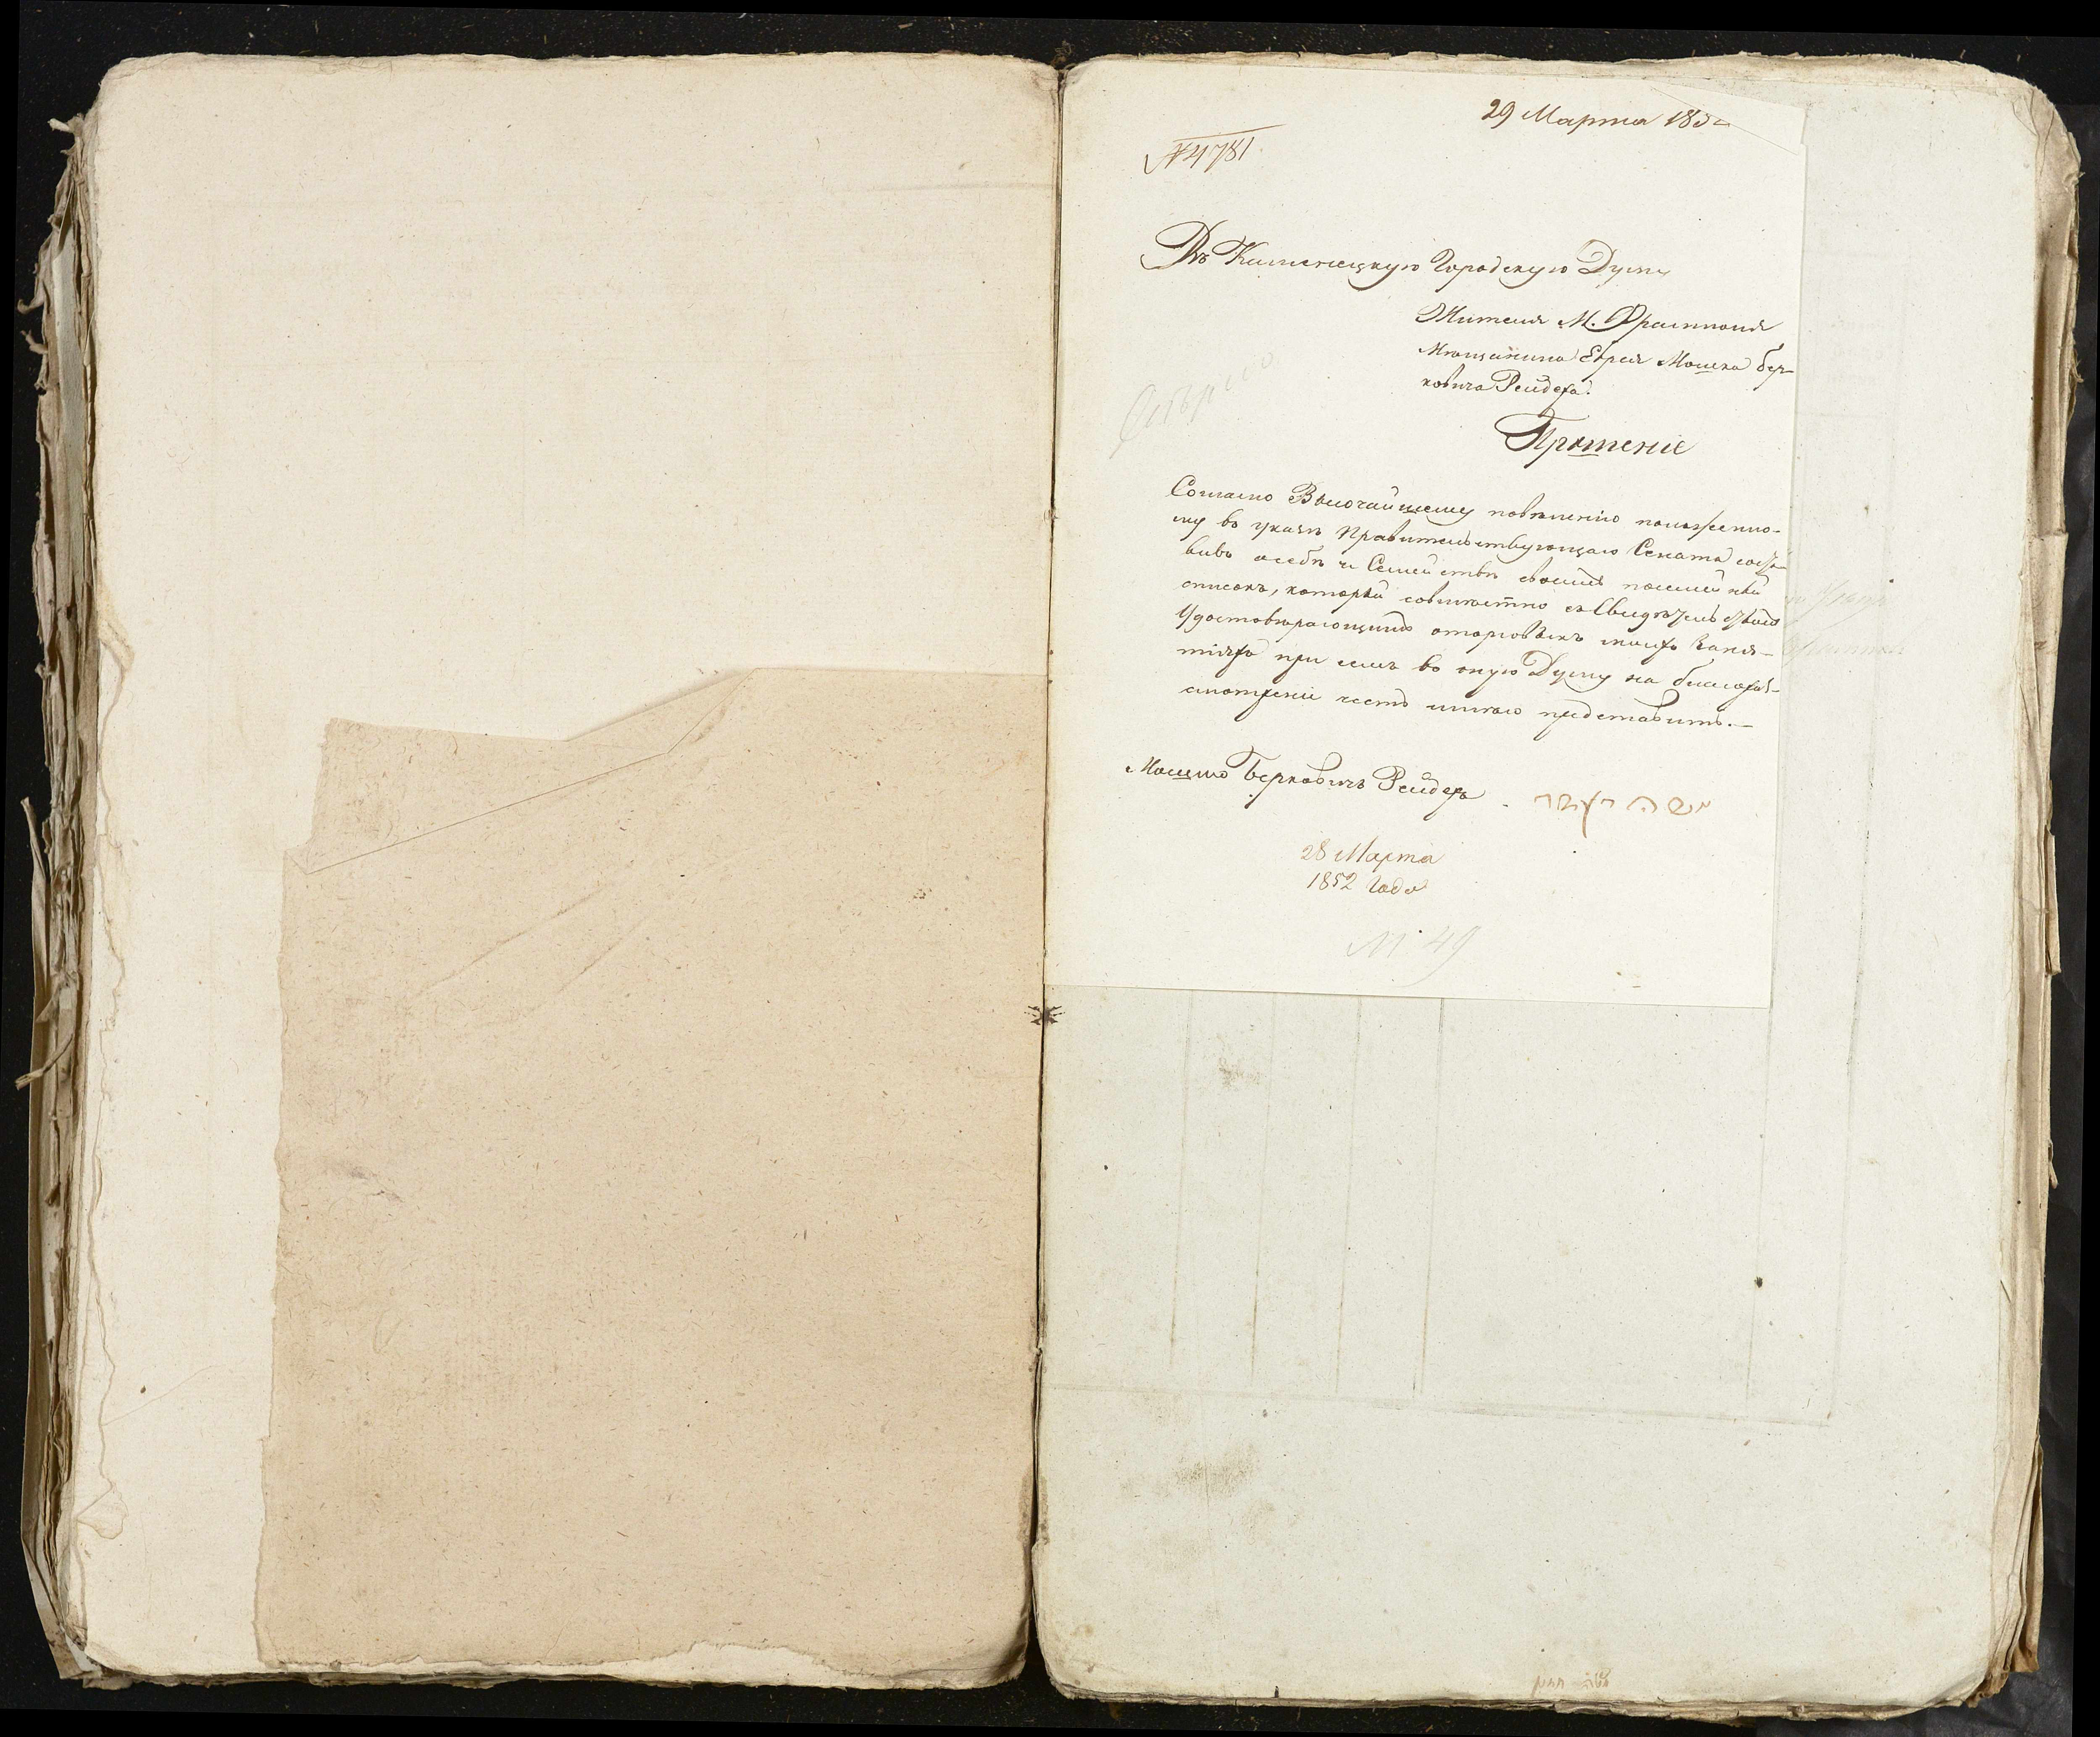 29 Марта 1852
№ 4781
Въ Каменецкую Городскую Думу
Жителя М. Фрамполя
Мѣщанина Еврея Мошка Бер-
ковича Рейдера.
Прошеніе
Согласно Высочайшему повѣленію изложенно-
му въ указѣ Правительствующаго Сената соста-
вивъ о себѣ и Семействѣ своимъ посемейный
списокъ, который совмѣстно съ Свидѣтельствомъ
Удостовѣряющимъ о торговыхъ моихъ заня-
тіяхъ при семъ въ оную Думу на благора-
смотреніе честь имѣю представить.—
Мошко Берковичъ Рейдеръ משה ריידר
28 Марта
1852 Года
№ 49